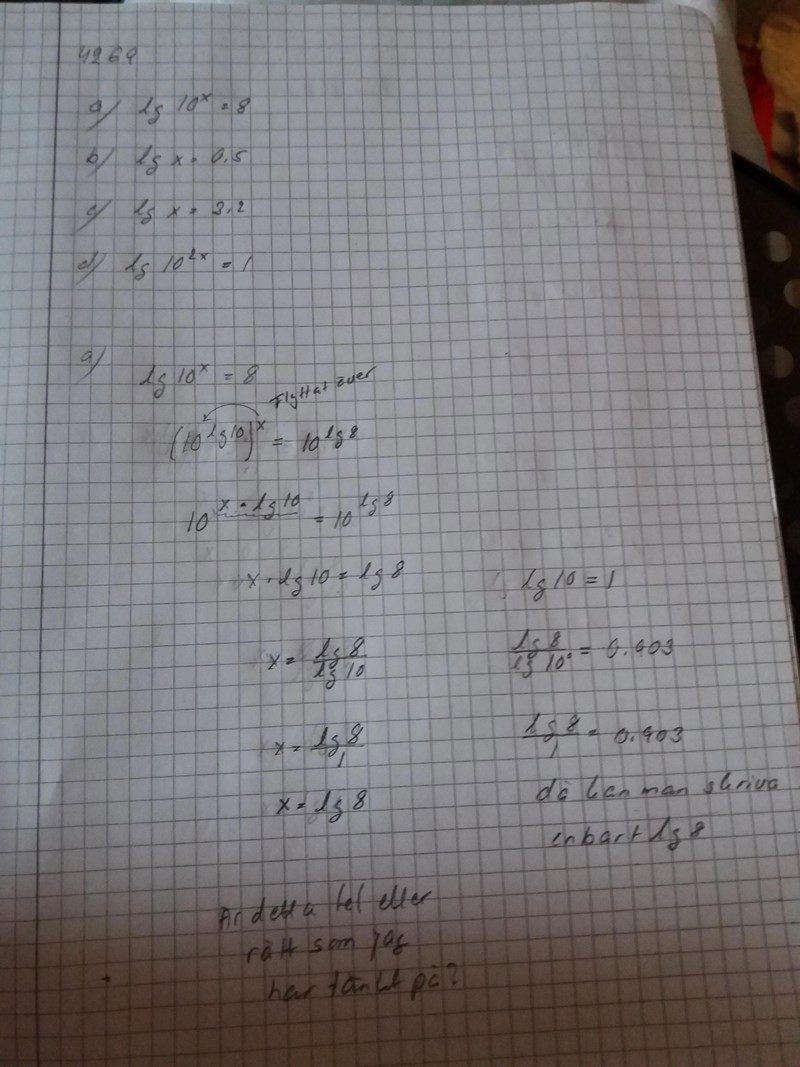 4269
a) lg 10ˣ = 8
b) lg x = 0.5
c) lg x = 3.2
d) lg 10²ˣ = 1
a)
lg 10ˣ = 8
Flyttat över
(10^lg10)^x = 10^lg8
10^(x · lg10) = 10^lg8
x · lg 10 = lg 8
lg 10 = 1
x = lg 8 / lg 10
lg 8 / lg 10 = 0.903
x = lg 8 / 1
lg 8 / 1 = 0.903
x = lg 8
då kan man skriva
enbart lg 8
Är detta fel eller
rätt som jag
har tänkt på?